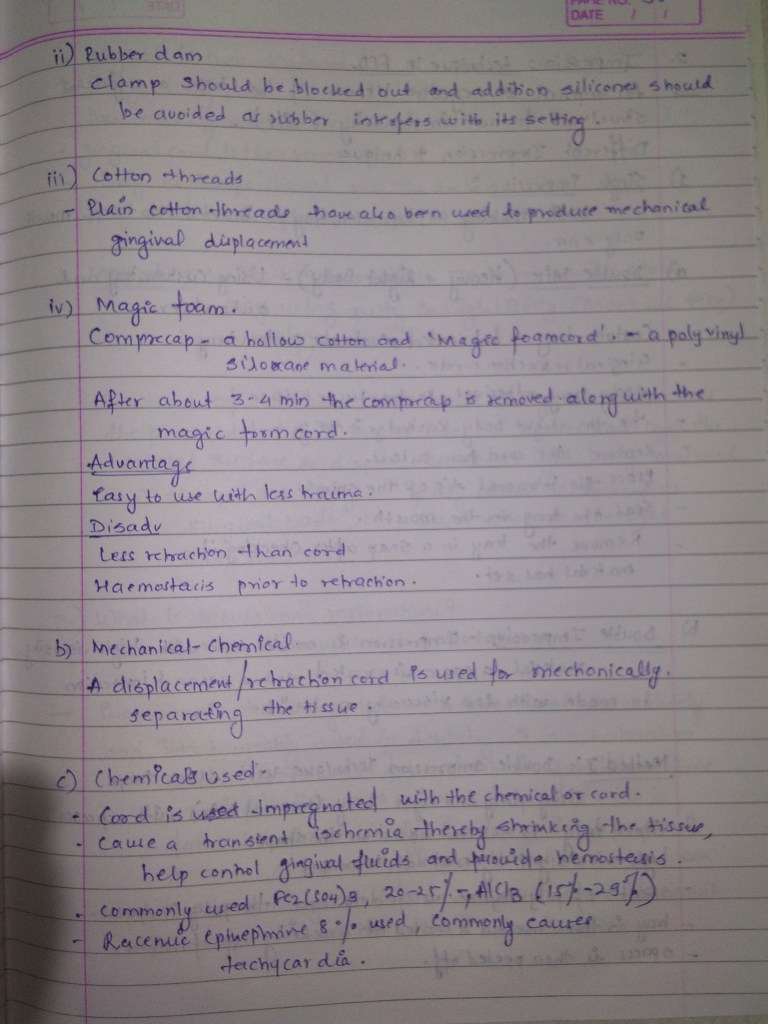 PAGE NO.
DATE / /
ii) Rubber dam
Clamp should be blocked out and addition silicones should
be avoided as rubber interfers with its setting.
iii) Cotton threads
- Plain cotton threads have also been used to produce mechanical
gingival displacement
iv) Magic foam.
Comprecap - a hollow cotton and 'Magic foamcord'. - a poly vinyl
siloxane material.
After about 3-4 min the comprecap is removed along with the
magic formcord.
Advantage
Easy to use with less trauma.
Disadv
Less retraction than cord
Haemostasis prior to retraction.
b) Mechanical - Chemical.
A displacement/retraction cord is used for mechonically.
separating the tissue.
c) Chemicals used -
- Cord is used impregnated with the chemical or cord.
- Cause a transient ischemia thereby shrinking the tissue,
help control gingival fluids and provide hemostasis.
- commonly used Fe2(SO4)3, 20-25% -, AlCl3 (15%-25%)
- Racemic epinephrine 8% used, commonly causes
tachycardia.